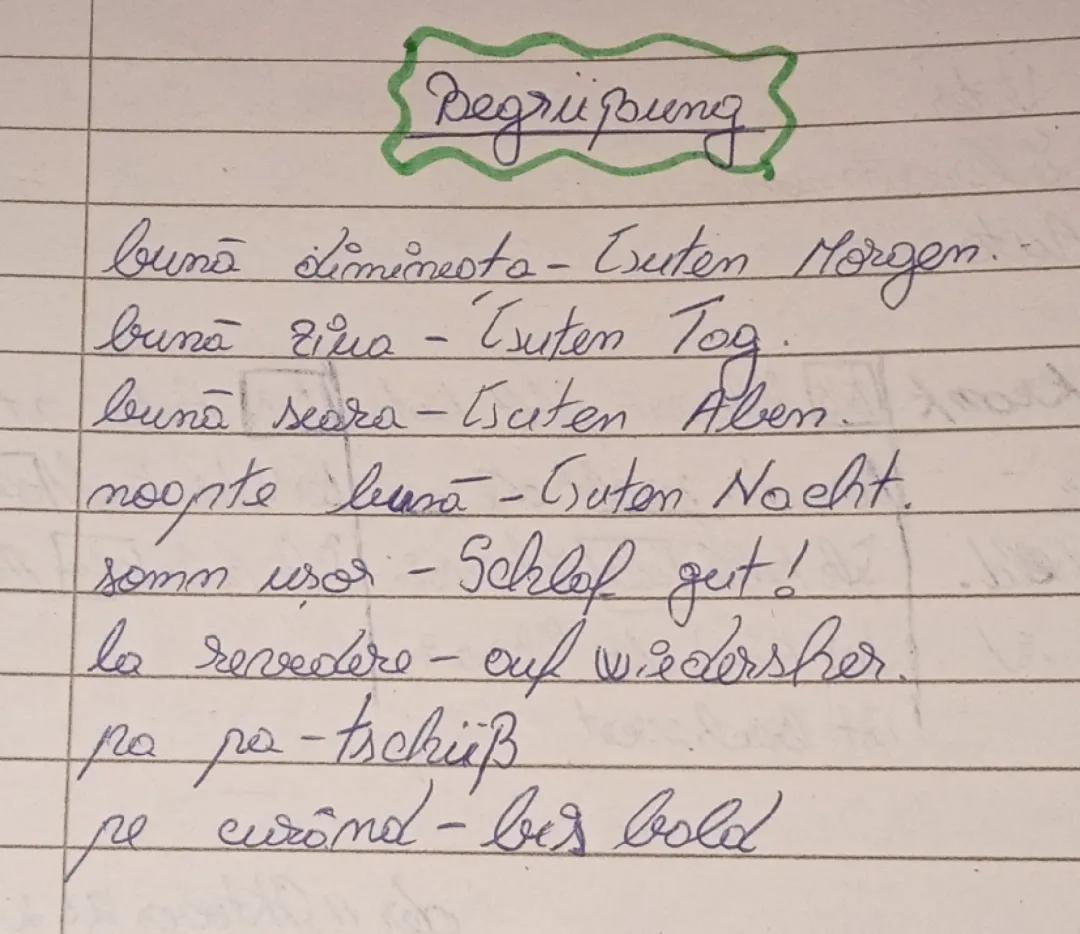 Begrüßung
bună dimineata - Guten Morgen.
bună ziua - Guten Tag.
bună seara - Guten Aben.
noapte bună - Guten Nacht.
somn ușor - Schlaf gut!
la revedere - auf wiedersher.
pa pa - tschüß
pe curând - bis bald